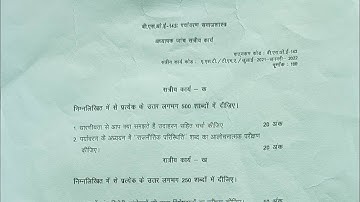 बी.एस.ओ.ई-143: पर्यावरण समाजशास्त्र
अध्यापक जांच सत्रीय कार्य
पाठ्यक्रम कोड : बी.एस.ओ.ई-143
सत्रीय कार्य कोड : ए.एस.टी./टी.एम.ए./जुलाई-2021-जनवरी-2022
पूर्णांक : 100
सत्रीय कार्य - क
निम्नलिखित में से प्रत्येक के उत्तर लगभग 500 शब्दों में दीजिए।
1 धारणीयता से आप क्या समझते हैं उदाहरण सहित चर्चा कीजिए। 20 अंक
2 पर्यावरण के अध्ययन में "राजनीतिक परिस्थिति" शब्द का आलोचनात्मक परीक्षण
कीजिए। 20 अंक
सत्रीय कार्य - ख
निम्नलिखित में से प्रत्येक के उत्तर लगभग 250 शब्दों में दीजिए।